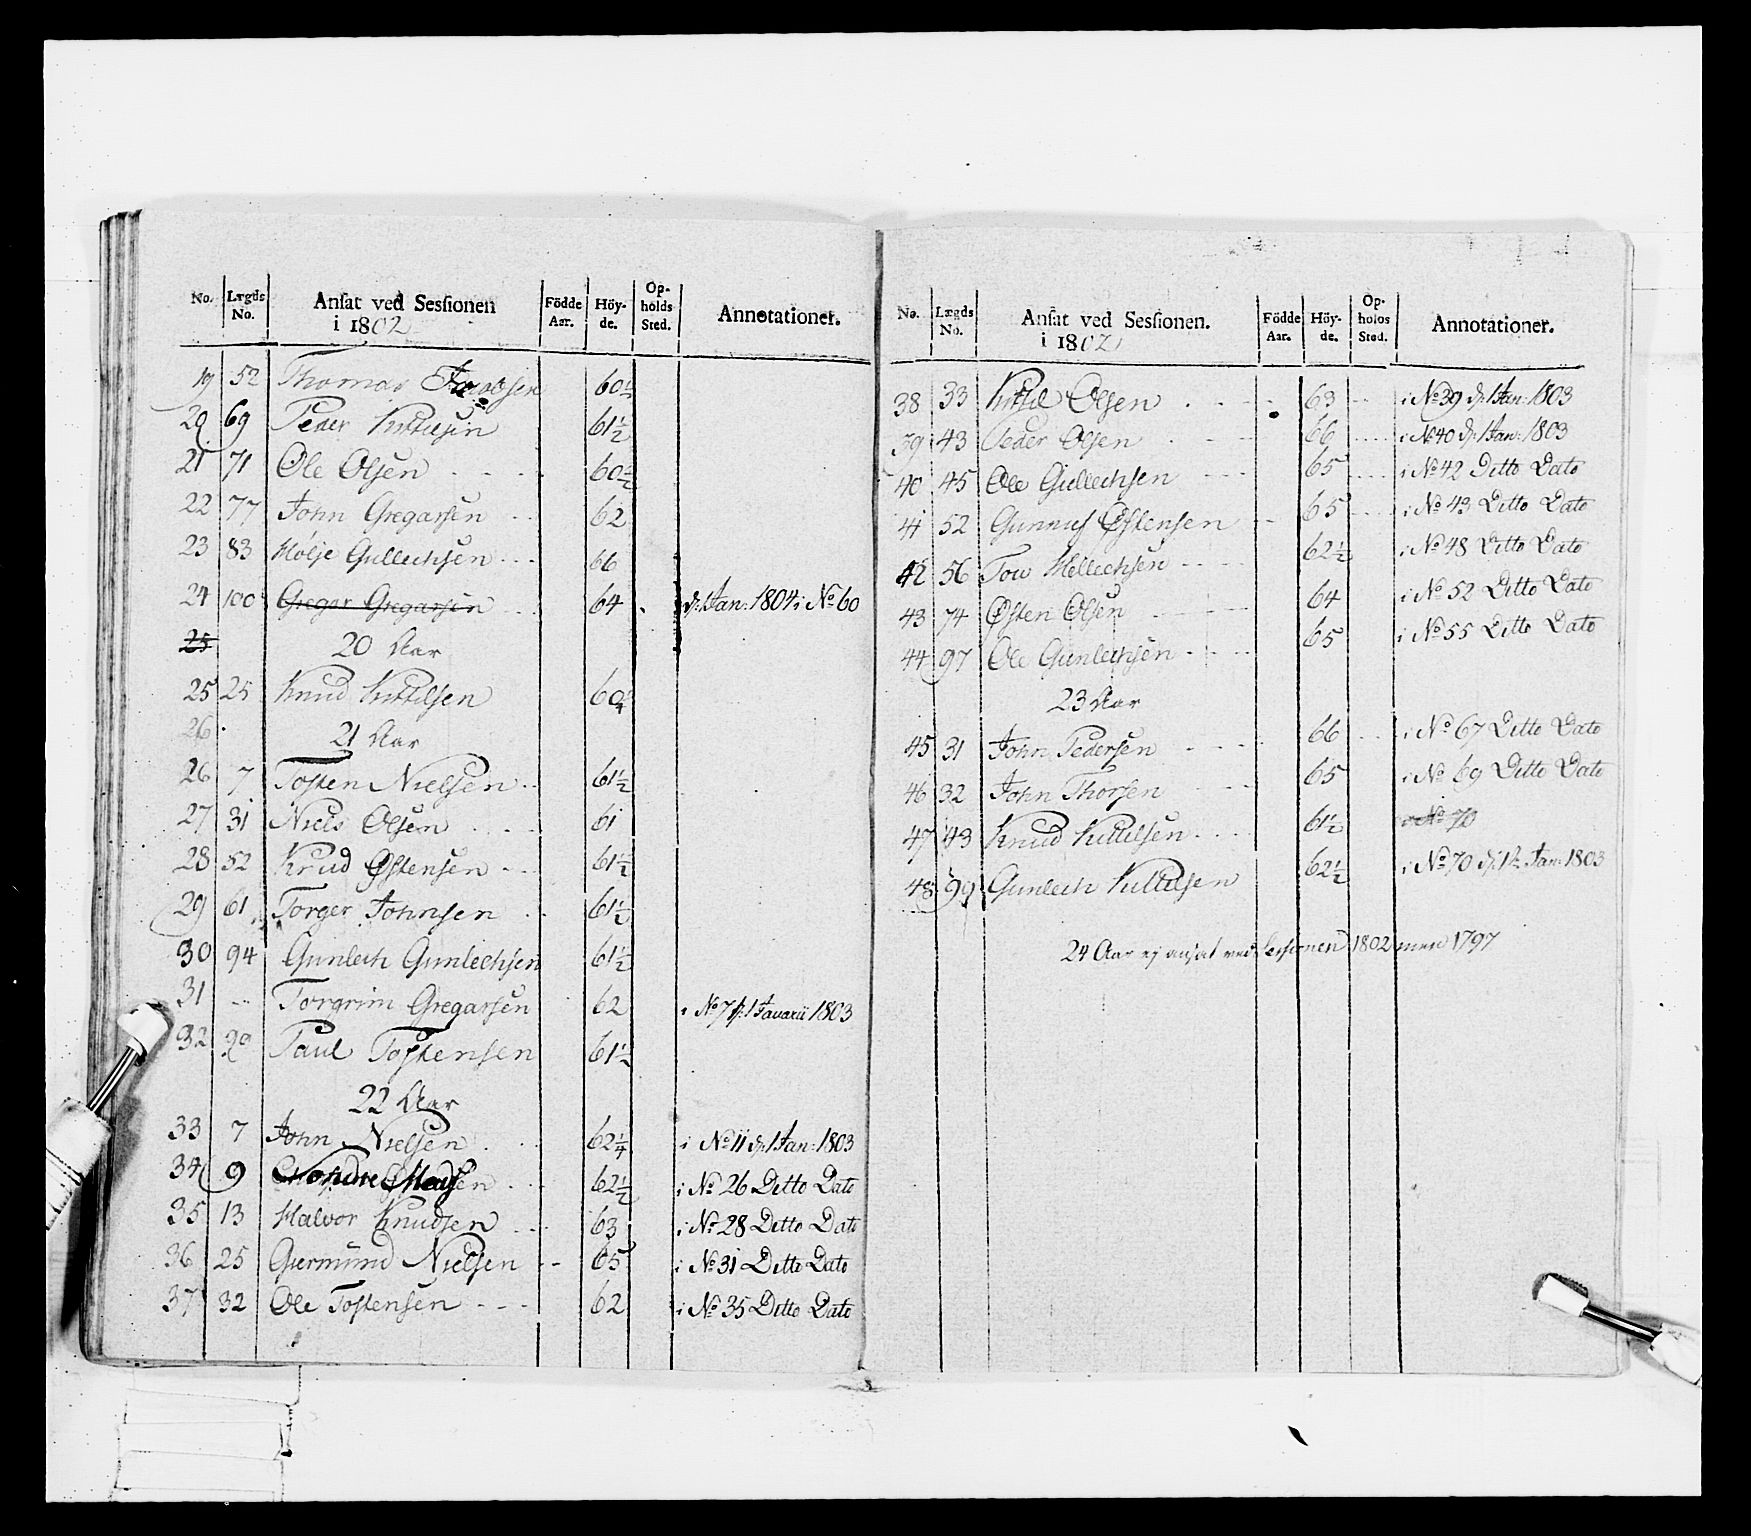 No. Lægds No. Ansat ved Sessionen i 1802 Födde Aar. Höy-de. Op-holds Sted. Annotationer.
19 52 Thomas Jacobsen 60½
20 69 Peder Kittilsen 61½
21 71 Ole Olsen 60½
22 77 John Gregarsen 62
23 83 Hølje Gullechsen 66
24 100 Gregar Gregarsen 64 d: 1 Jan: 1804 i No 60
25 20 Aar
25 25 Knud Kittilsen 60¼
26 21 Aar
26 7 Tosten Nielsen 61½
27 31 Niels Olsen 61
28 52 Knud Østensen 61½
29 61 Torger Johnsen 61½
30 94 Gunlech Gunlechsen 61½
31 -- Torgrim Gregarsen 62 i No 7 d: 1 Januarii 1803
32 99 Paul Tostensen 61½
22 Aar
33 7 John Nielsen 62¼ i No 11 d: 1 Jan: 1803
34 9 62½ i No 26 Ditto Dato
35 13 Halvor Knudsen 63 i No 28 Ditto Dato
36 25 Giermund Nielsen 65 i No 31 Ditto Dato
37 32 Ole Tostensen 62 i No 35 Ditto Dato
No. Lægds No. Ansat ved Sessionen. i 1802 Födde Aar. Höy-de. Op-holds Sted. Annotationer.
38 33 Kittil Olsen 63 i No 39 d: 1 Jan: 1803
39 43 Peder Olsen 66 i No 40 d: 1 Jan: 1803
40 45 Ole Gullechsen 65 i No 42 Ditto Dato
41 52 Gunnuf Østensen 65 i No 43 Ditto Dato
42 56 Tov Hellechsen 62½ i No 48 Ditto Dato
43 74 Østen Olsen 64 i No 52 Ditto Dato
44 97 Ole Gunlechsen 65 i No 55 Ditto Dato
23 Aar
45 31 John Pedersen 66 i No 67 Ditto Dato
46 32 John Thorsen 65 i No 69 Ditto Dato
47 43 Knud Kittilsen 61½ i No 70
48 99 Gunlech Kittilsen 62½ i No 70 d: 1 Jan: 1803
24 Aar ej ansat ved Sessionen 1802 men 1797